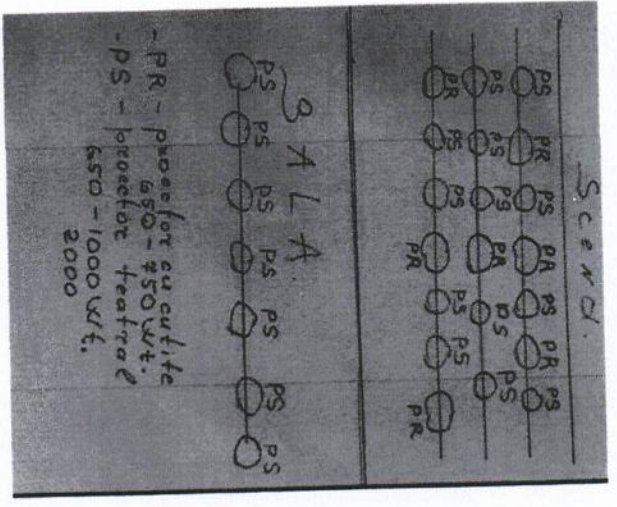 Scena.
PS PR PS PR PS PR PS
PS PS PS PR PS PS
PR PS PS PR PS PS PR
SALA.
PS PS PS PS PS PS PS
- PR - proector cu cutite
650-750 wt.
- PS - proector teatral
650-1000 wt.
2000